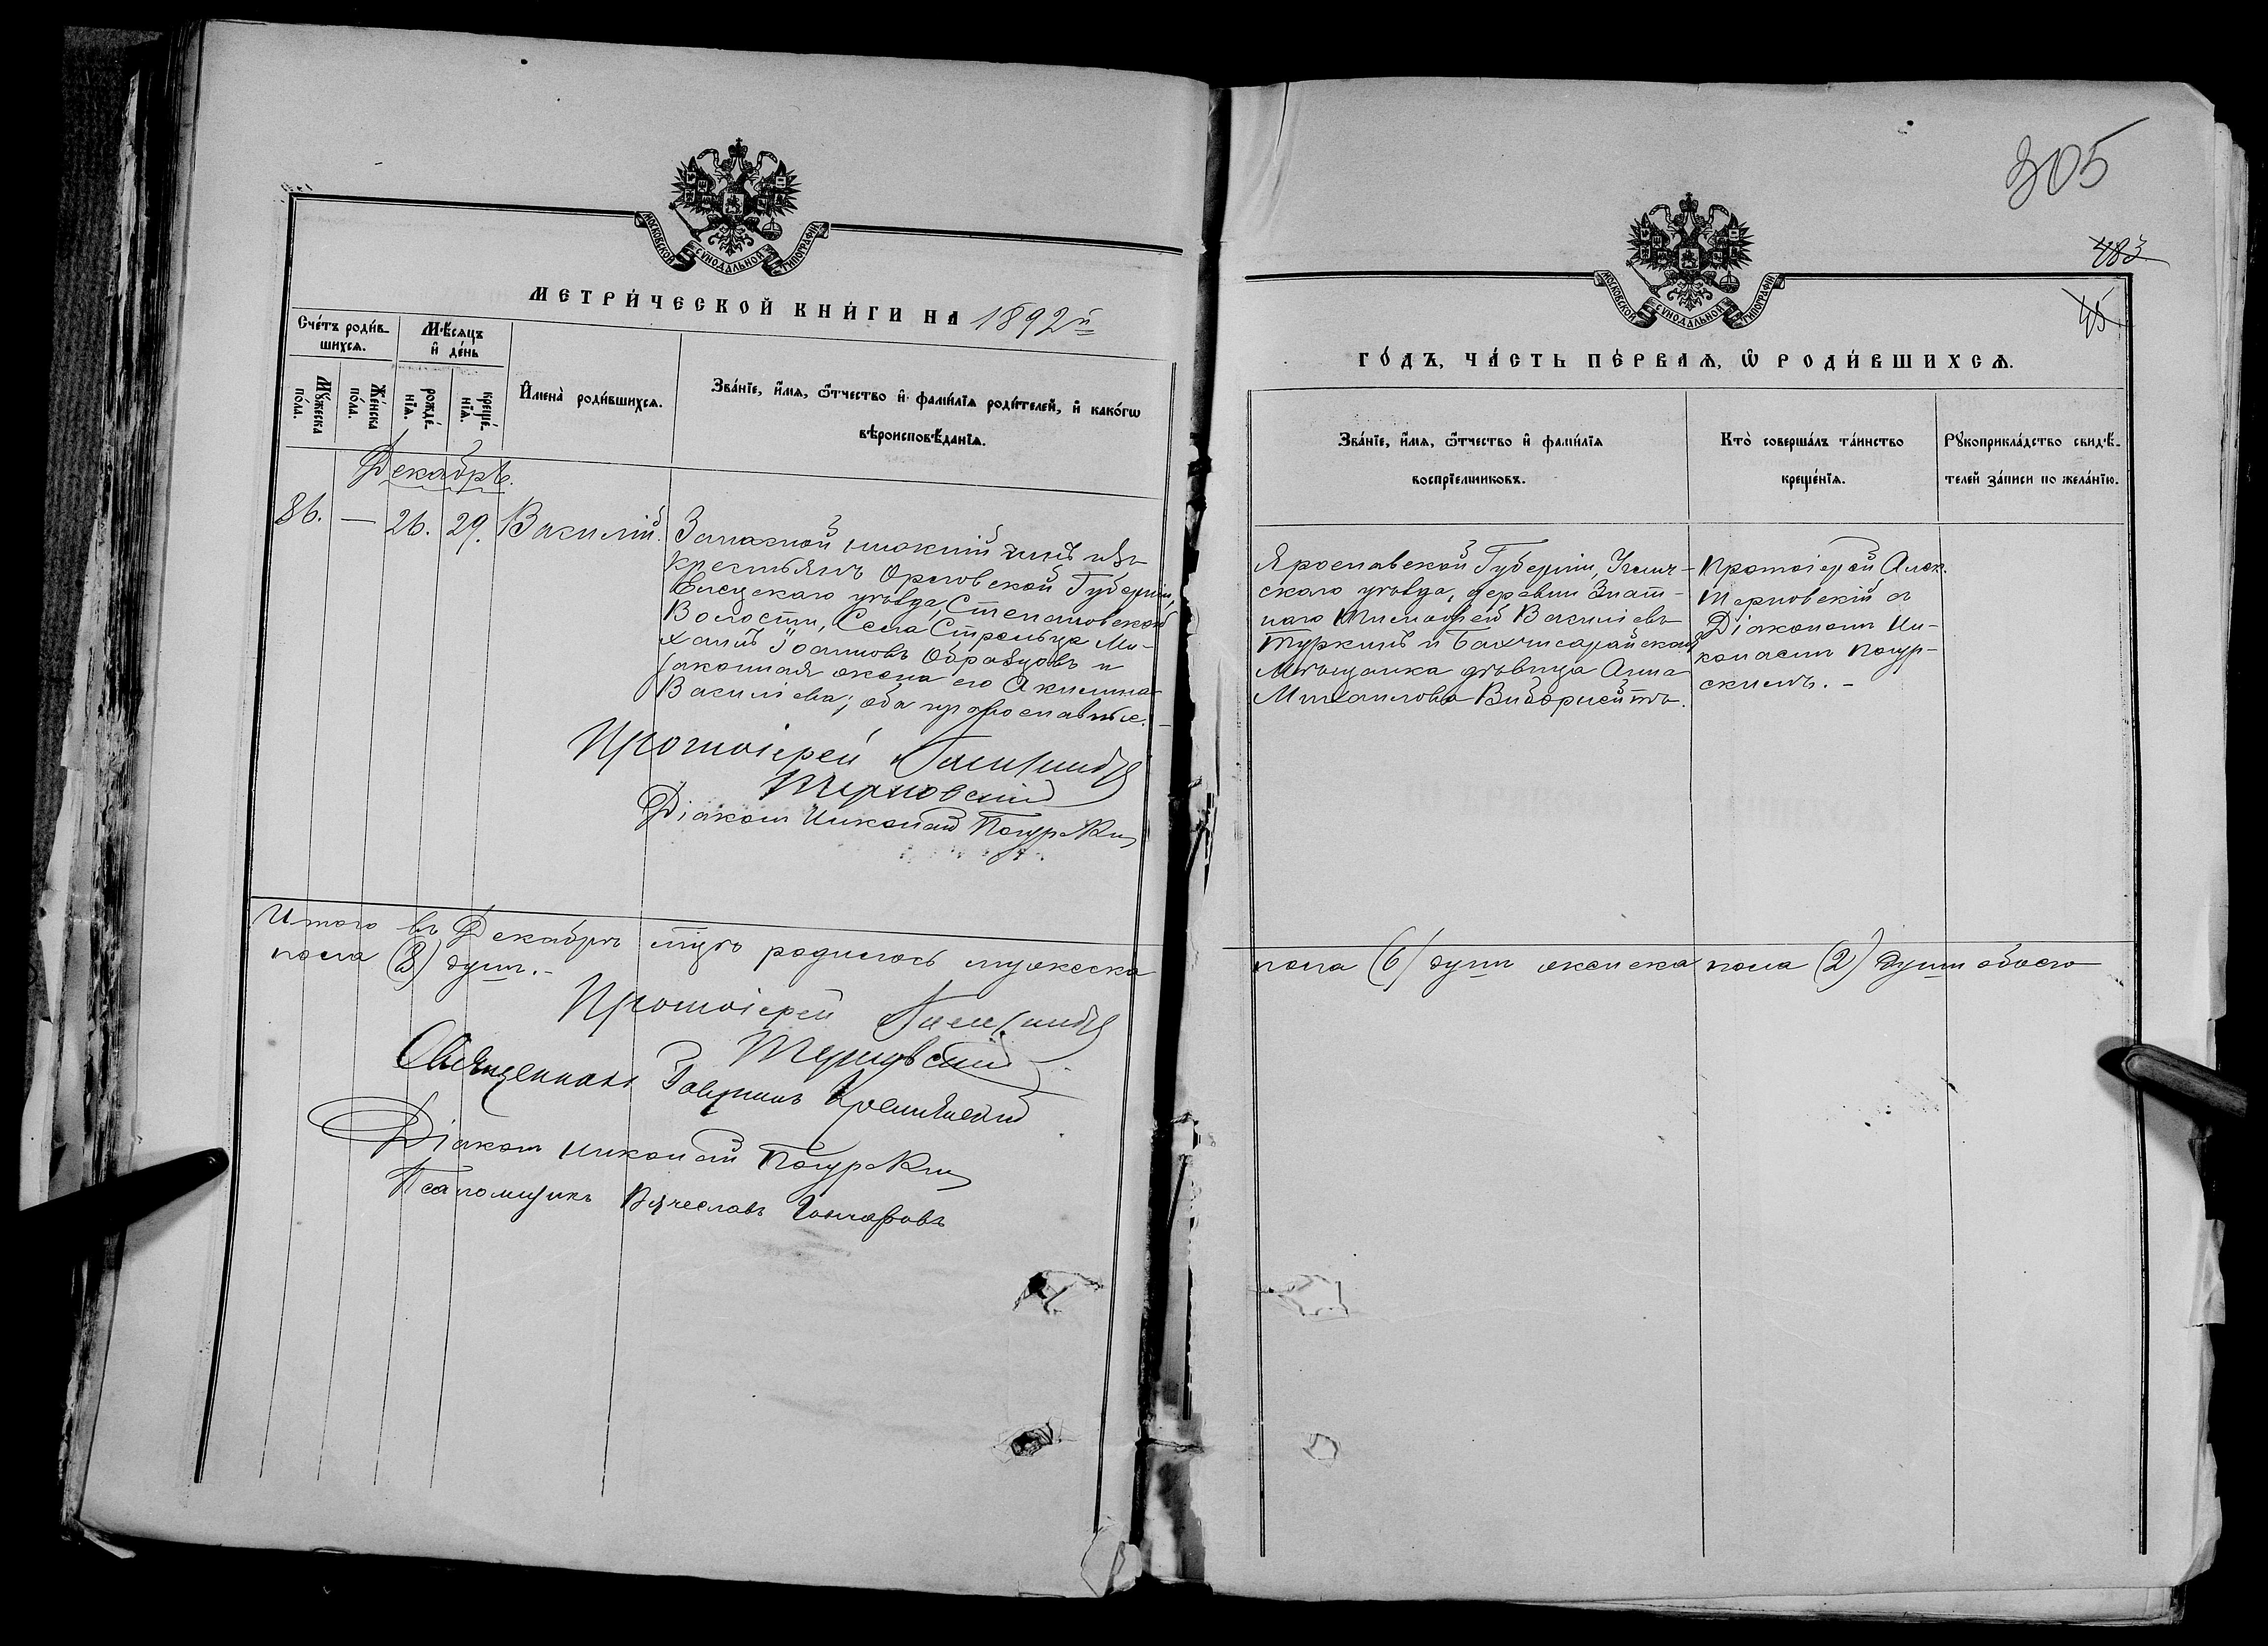 МОСКОВСКОЙ СѴНОДАЛЬНОЙ ТИПОГРАФІИ
МЕТРИ́ЧЕСКОЙ КНИ́ГИ НА 1892й
Сче́тъ роди́в-
шихсѧ.
Мѣ́сѧцъ
и҆ де́нь
Мꙋ́жеска
по́ла.
Же́нска
по́ла.
рожде́-
нїѧ.
креще́-
нїѧ.
И҆мена̀ роди́вшихсѧ.
Зва́нїе, и҆́мѧ, ѻ҆́тчество и҆ фами́лїѧ роди́телей, и҆ како́гѡ
вѣроисповѣ́данїѧ.
Декабрь.
86. — 26. 29. Василій.
Запасной нижній чинъ изъ
крестьянъ Орловской Губерніи,
Елецкаго уѣзда, Степановской
Волости, Села Стрельца Ми-
хаилъ Іоанновъ Образцовъ и
законная жена его Акилина
Васильева; оба православные. —
Протоіерей Александръ
Терновскій
Діаконъ Николай
Итого въ Декабрѣ мцѣ родилось мужеска
пола (8) душъ. -
Протоіерей Александръ
Терновскій
Священникъ
Діаконъ Николай
Псаломщикъ Вячеславъ Гончаровъ
305
483
45
МОСКОВСКОЙ СѴНОДАЛЬНОЙ ТИПОГРАФІИ
ГО́ДЪ, ЧА́СТЬ ПЕ́РВАѦ, Ѡ҆ РОДИ́ВШИХСѦ.
Зва́нїе, и҆́мѧ, ѻ҆́тчество и҆ фами́лїѧ
воспрїе́мниковъ.
Кто̀ соверша́лъ та́инство
креще́нїѧ.
Рꙋкоприкла́дство свидѣ́-
телей за́писи по жела́нїю.
Ярославской Губерніи, Углич-
скаго уѣзда, деревни Знат-
наго Тимофей Васильевъ
Туркинъ и Бахчисарайская
Мѣщанка дѣвица Анна
Михаилова
Протоіерей Алек.
Терновскій съ
Діакономъ Ни-
колаемъ
пола (6) душъ женска пола (2) души обоего